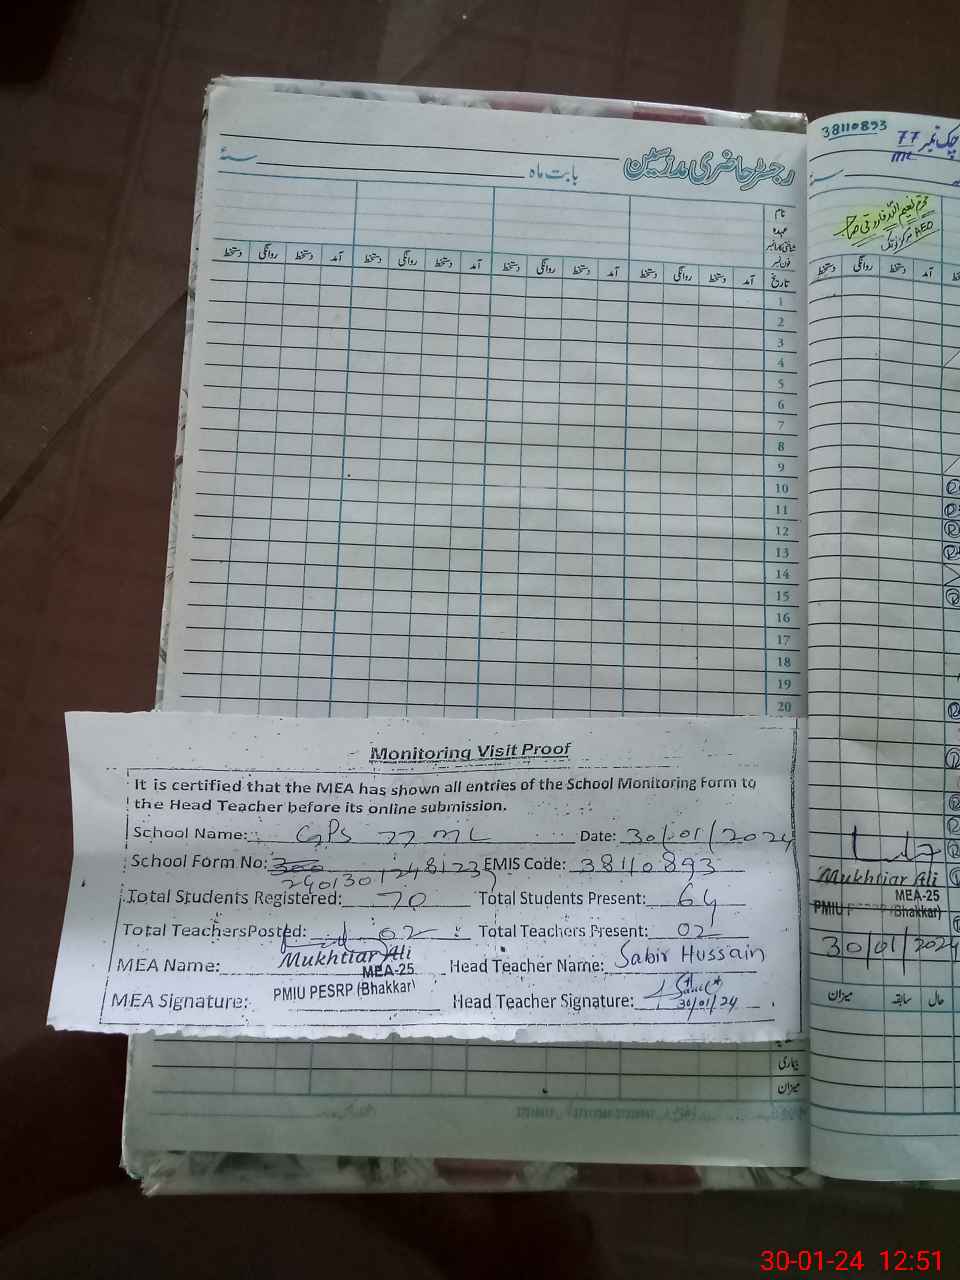 رجسٹر حاضری مدرسین
بابت ماہ
سنۂ
نام
عہدہ
فون نمبر
تاریخ آمد دستخط روانگی دستخط آمد دستخط روانگی دستخط آمد دستخط روانگی دستخط آمد دستخط روانگی دستخط
1
2
3
4
5
6
7
8
9
10
11
12
13
14
15
16
17
18
19
20
Monitoring Visit Proof
It is certified that the MEA has shown all entries of the School Monitoring Form to
the Head Teacher before its online submission.
School Name: GPS 77 ML Date: 30/01/2024
School Form No: 2401301248123 EMIS Code: 38110893
Total Students Registered: 70 Total Students Present: 64
Total TeachersPosted: 02 Total Teachers Present: 02
MEA Name: Mukhtiar Ali Head Teacher Name: Sabir Hussain
MEA-25
MEA Signature: PMIU PESRP (Bhakkar) Head Teacher Signature:
30/01/24
بیماری
میزان
38110893
چک نمبر 77
ML
AEO مرکز
آمد دستخط روانگی دستخط
Mukhtiar Ali
MEA-25
PMIU PESRP (Bhakkar)
30/01/2024
حال سابقہ میزان
30-01-24 12:51